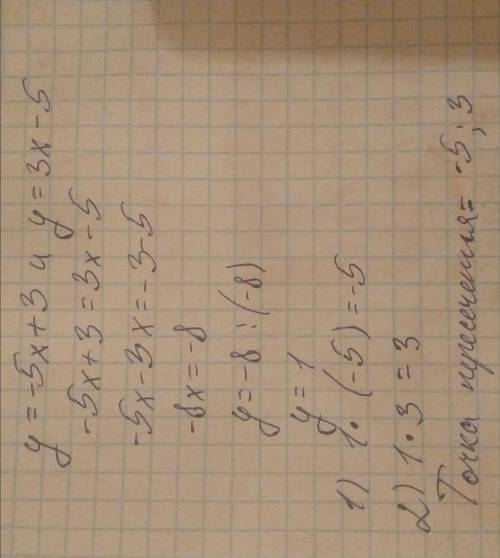 y = -5x + 3 и y = 3x - 5
-5x + 3 = 3x - 5
-5x - 3x = -3 - 5
-8x = -8
y = -8 : (-8)
y = 1
1) 1 • (-5) = -5
2) 1 • 3 = 3
Точка пересечения = -5; 3